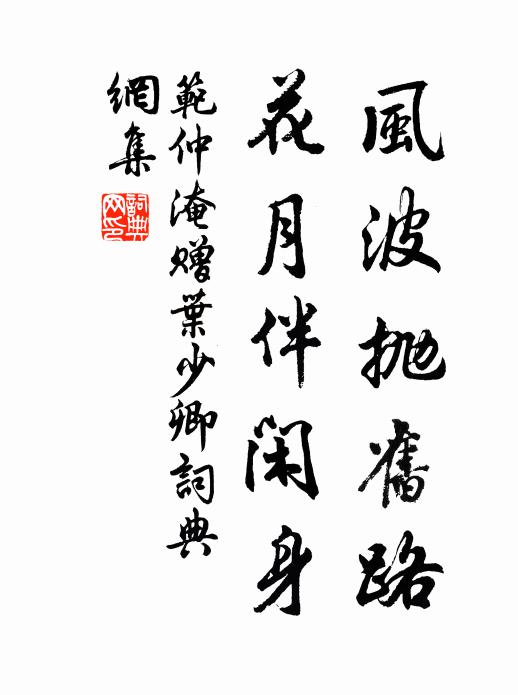 風波拋舊路
花月伴閑身
範仲淹贈葉少卿詞典
網集
詞典
网印